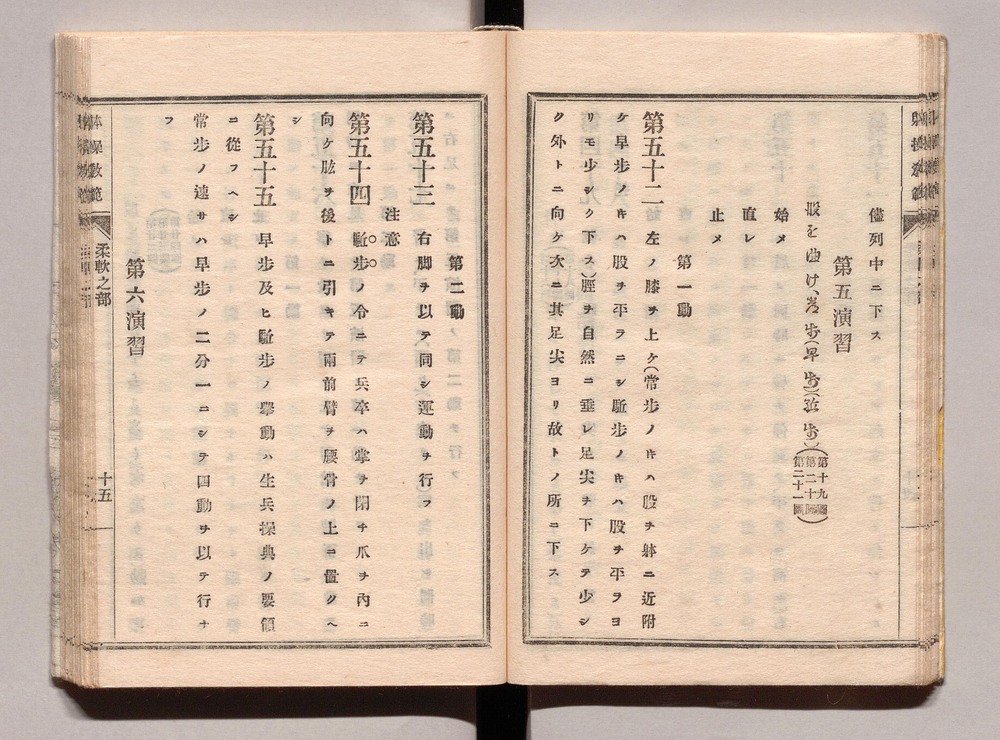 儘列中ニ下ス
第五演習
股を曲け、常步(早步)(駈步)(第十九圖 第二十圖 第二十一圖)
始メ
直レ
止メ
第一動
第五十二 左ノ膝ヲ上ケ(常步ノキハ股ヲ躰ニ近附
ケ早步ノキハ股ヲ平ラニシ駈步ノキハ股ヲ平ラヨ
リモ少シク下ス)脛ヲ自然ニ垂レ足尖ヲ下ケテ少シ
ク外トニ向ケ次ニ其足尖ヨリ故トノ所ニ下ス
第二動
第五十三 右脚ヲ以テ同シ運動ヲ行フ
注意
第五十四 駈步ノ令ニテ兵卒ハ掌ヲ閉チ爪ヲ內ニ
向ケ肱ヲ後トニ引キテ兩前臂ヲ腰骨ノ上ニ置クヘ
シ
第五十五 早步及ヒ駈步ノ擧動ハ生兵操典ノ要領
ニ從フヘシ
常步ノ速サハ早步ノ二分一ニシテ四動ヲ以テ行ナ
フ
第六演習
体操教範
柔軟之部
十五